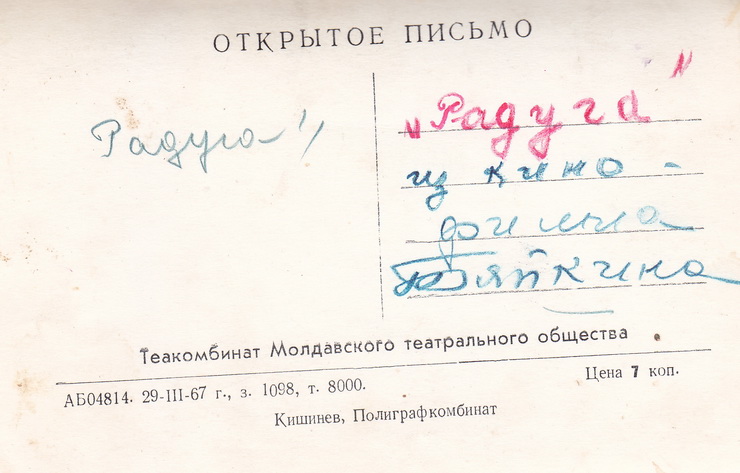 ОТКРЫТОЕ ПИСЬМО
Радуга"
„Радуга"
из кино -
фильма
Тяпкина
Теакомбинат Молдавского театрального общества
АБ04814. 29-III-67 г., з. 1098, т. 8000.
Цена 7 коп.
Кишинев, Полиграфкомбинат